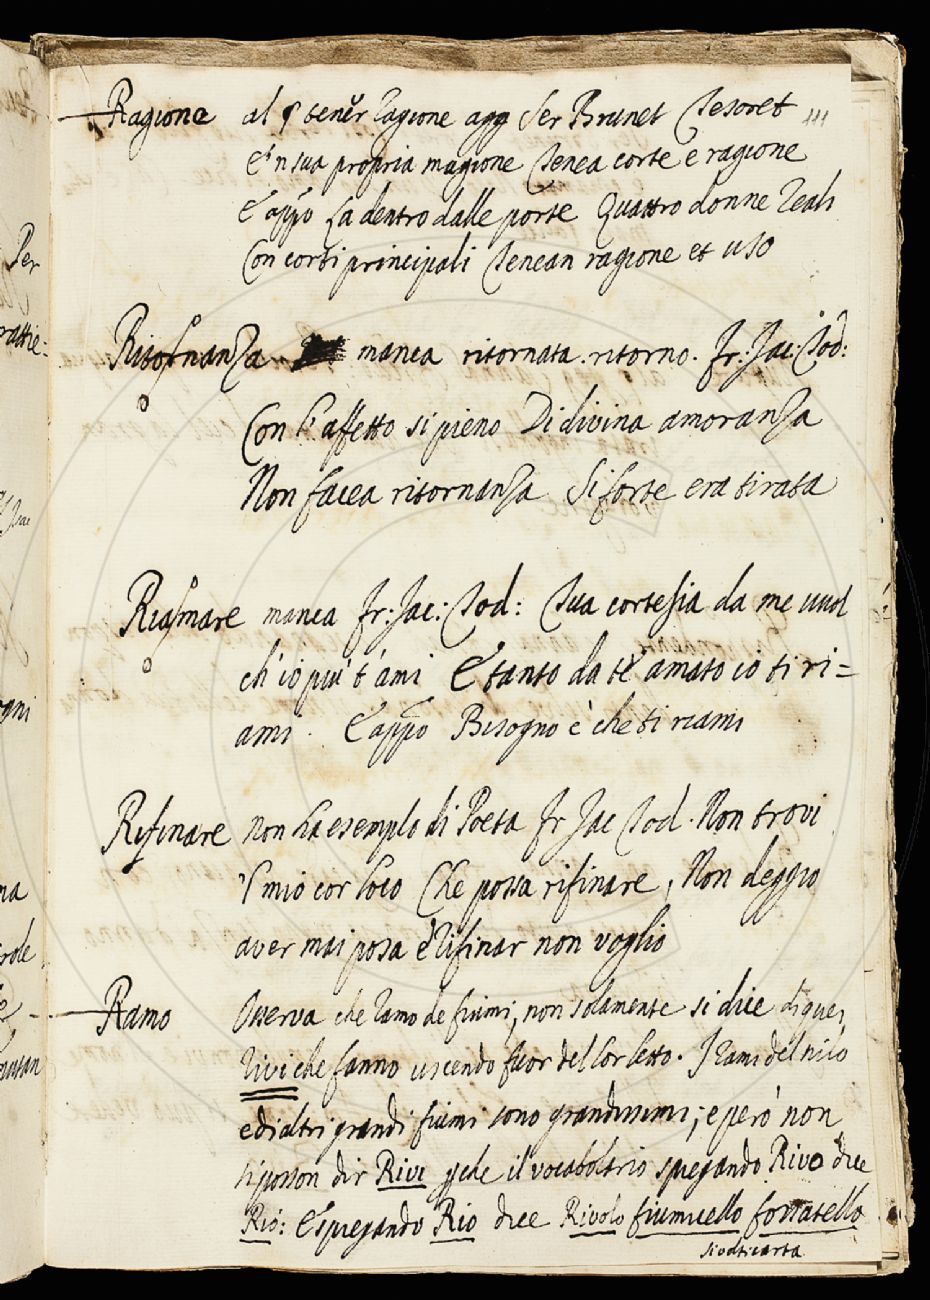 Ragione al § tener ragione agg Ser Brunet Tesoret 111
E'n sua propria magione Tenea corte e ragione
E appo La dentro dalle porte Quattro donne Reali
Con corti principali Tenean ragione et uso
Ritornanza manca ritornata. ritorno. fr: Jac: Tod:
Con l'affetto si pieno Di divina amoranza
Non facea ritornanza Si forte era tirata
Riamare manca fr: Jac: Tod: Tua cortesia da me vuol
ch'io piu t'ami E tanto da te amato io ti ri=
ami. E appo Bisogno è che ti riami
Rifinare non ha esemplo di Poeta fr Jac Tod. Non trovi
'l mio cor loco Che possa rifinare, Non deggio
aver mai posa e rifinar non voglio
Ramo Osserva che ramo de fiumi, non solamente si dice di quei
Rivi che fanno uscendo fuor del lor letto. I rami del nilo
e di altri grandi fiumi sono grandissimi; e però non
si posson dir Rivi che il vocabolario spiegando Rivo dice
Rio: E spiegando Rio dice Rivolo fiumicello fossatello